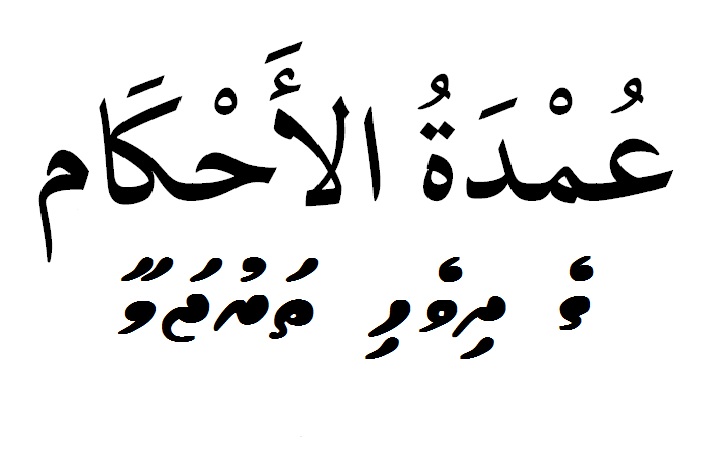 عُمْدَةُ الأَحْكَام
ގެ ދިވެހި ތަރުޖަމާ